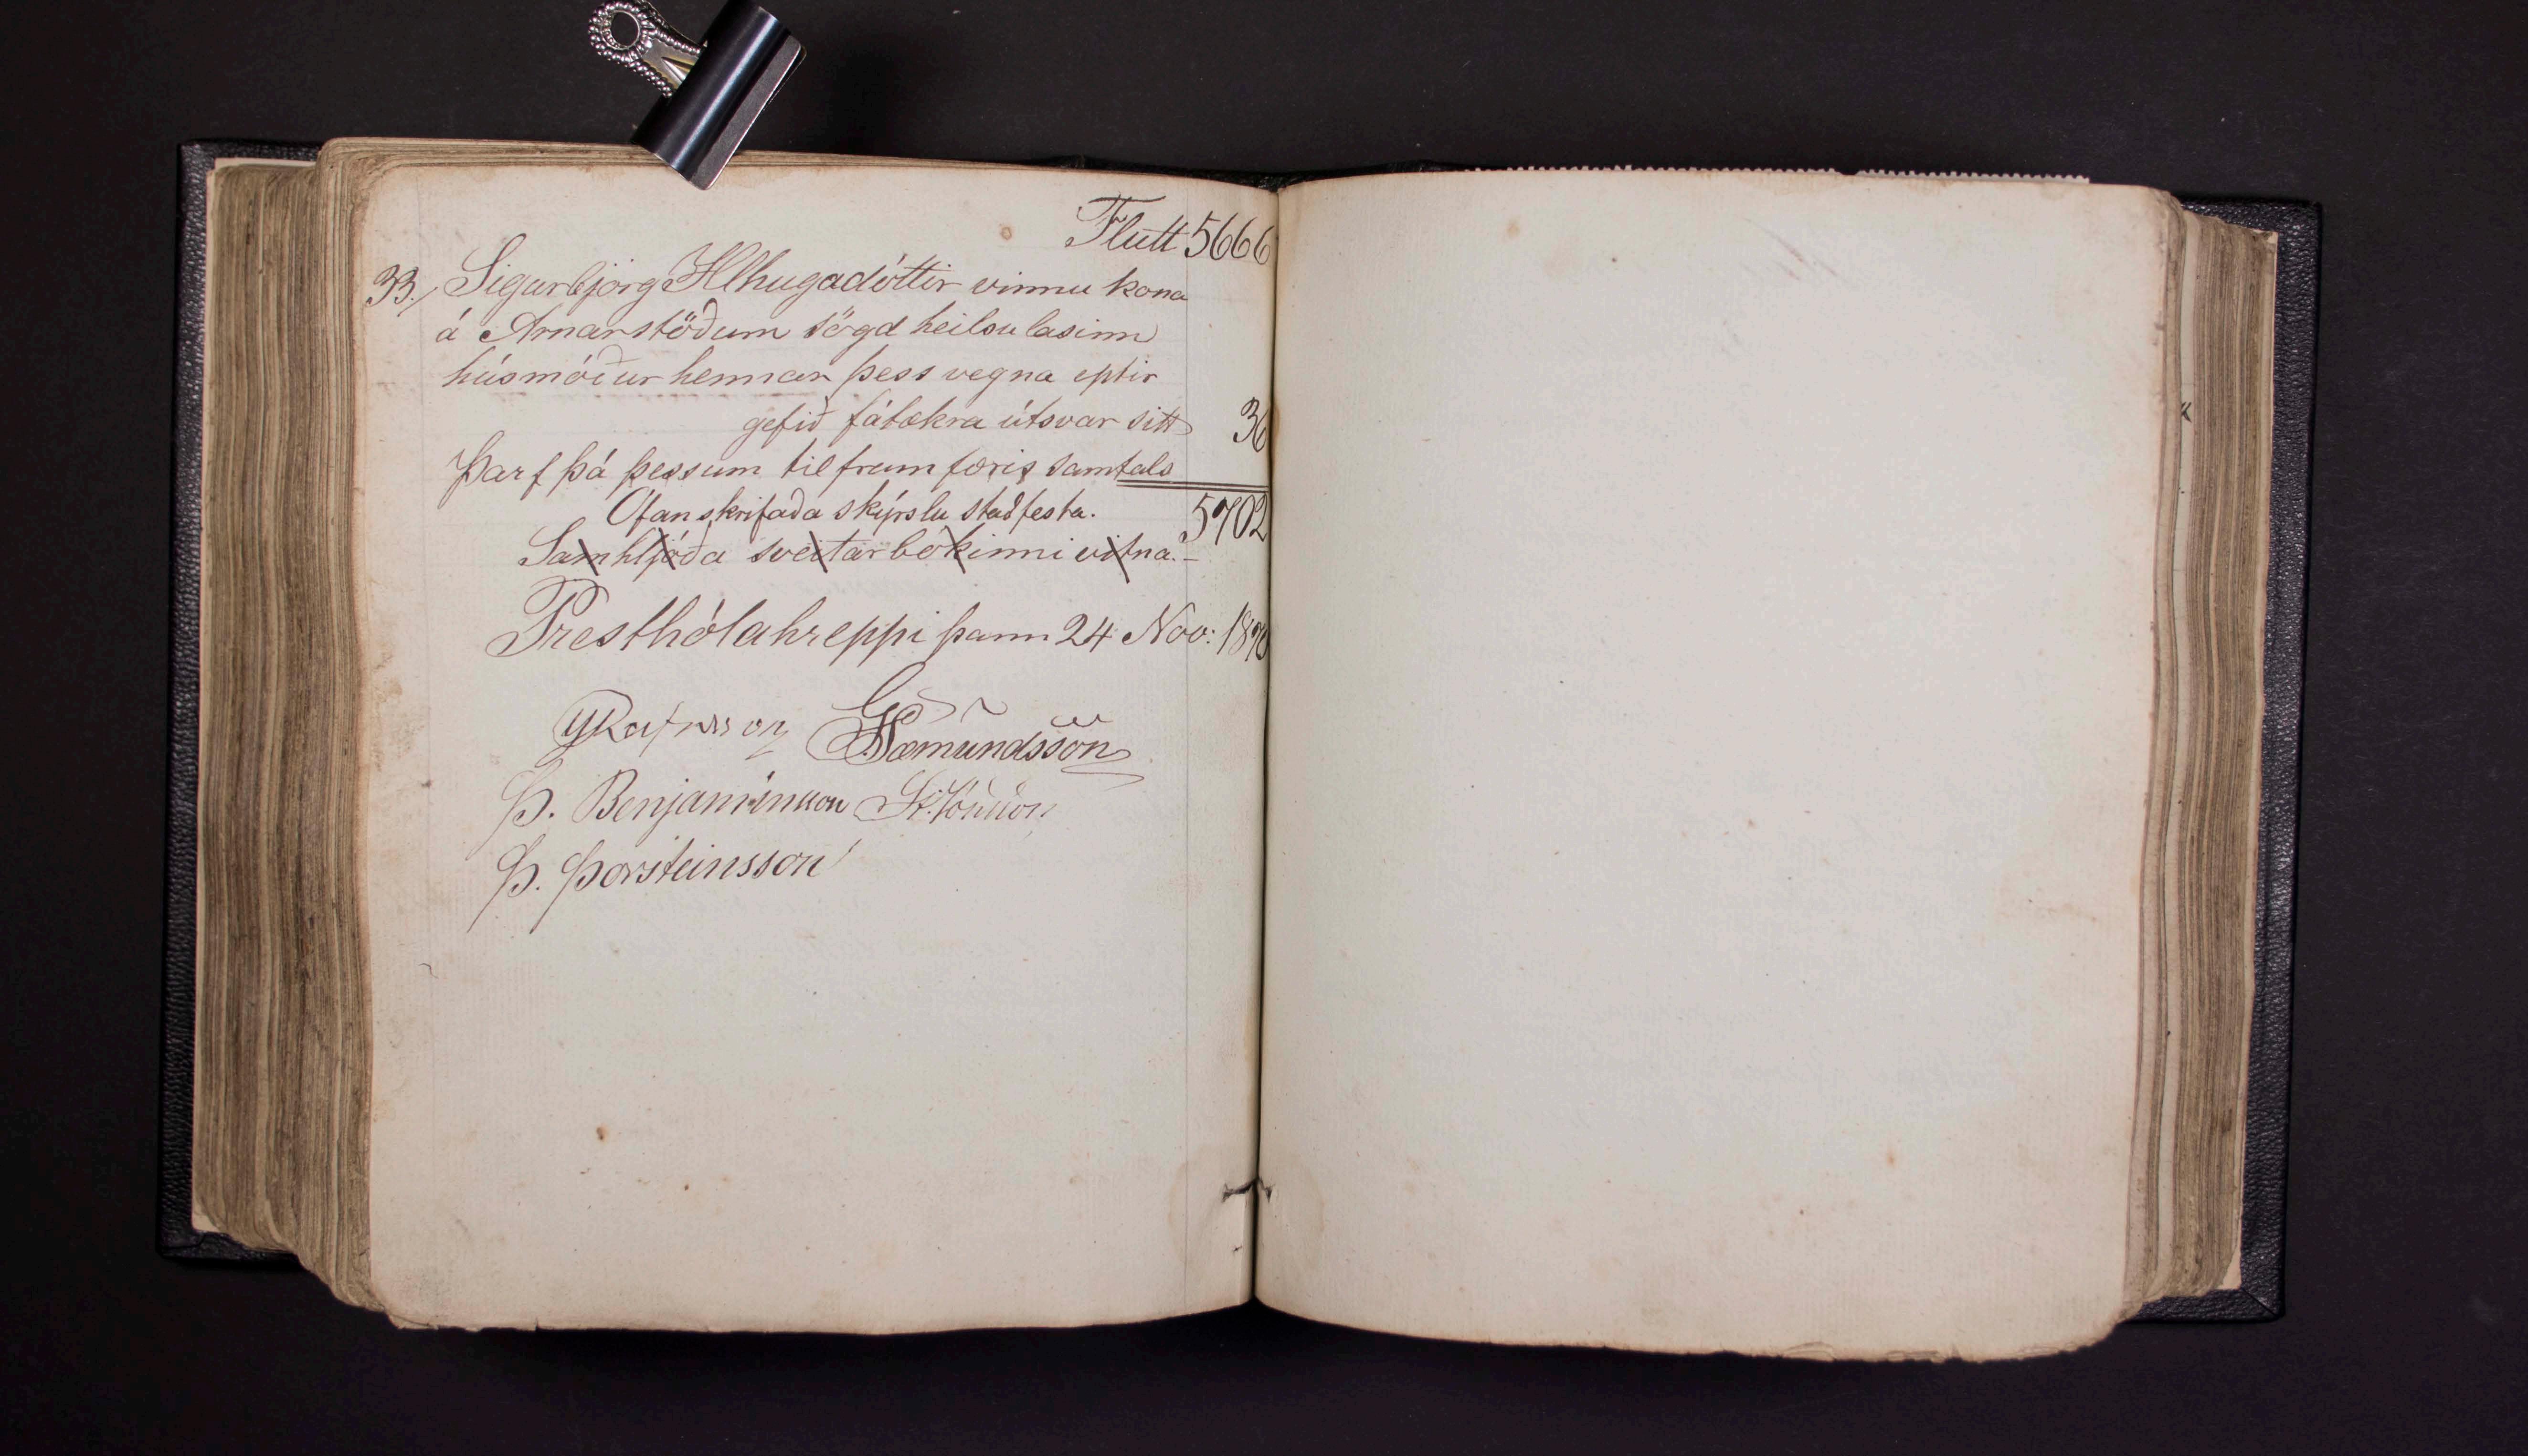 Flutt 5666
33., Sigurbjörg Illhugadóttir vinnu kona
á Arnarstöðum sögd heilsu lasinn
húsmóður hennar þess vegna eptir
gefið fátækra útsvar sitt 36
Þarf þá þessum til framfæris samtals
Ofanskrifaða skýrslu staðfesta. 5702
Samhljóða sveitarbókinni vitna.-
Presthólahreppi þann 24 Nov: 1870
Rafnsson G Sæmundsson
Þ. Benjamínsson St. Jónsson
Þ. Þorsteinsson